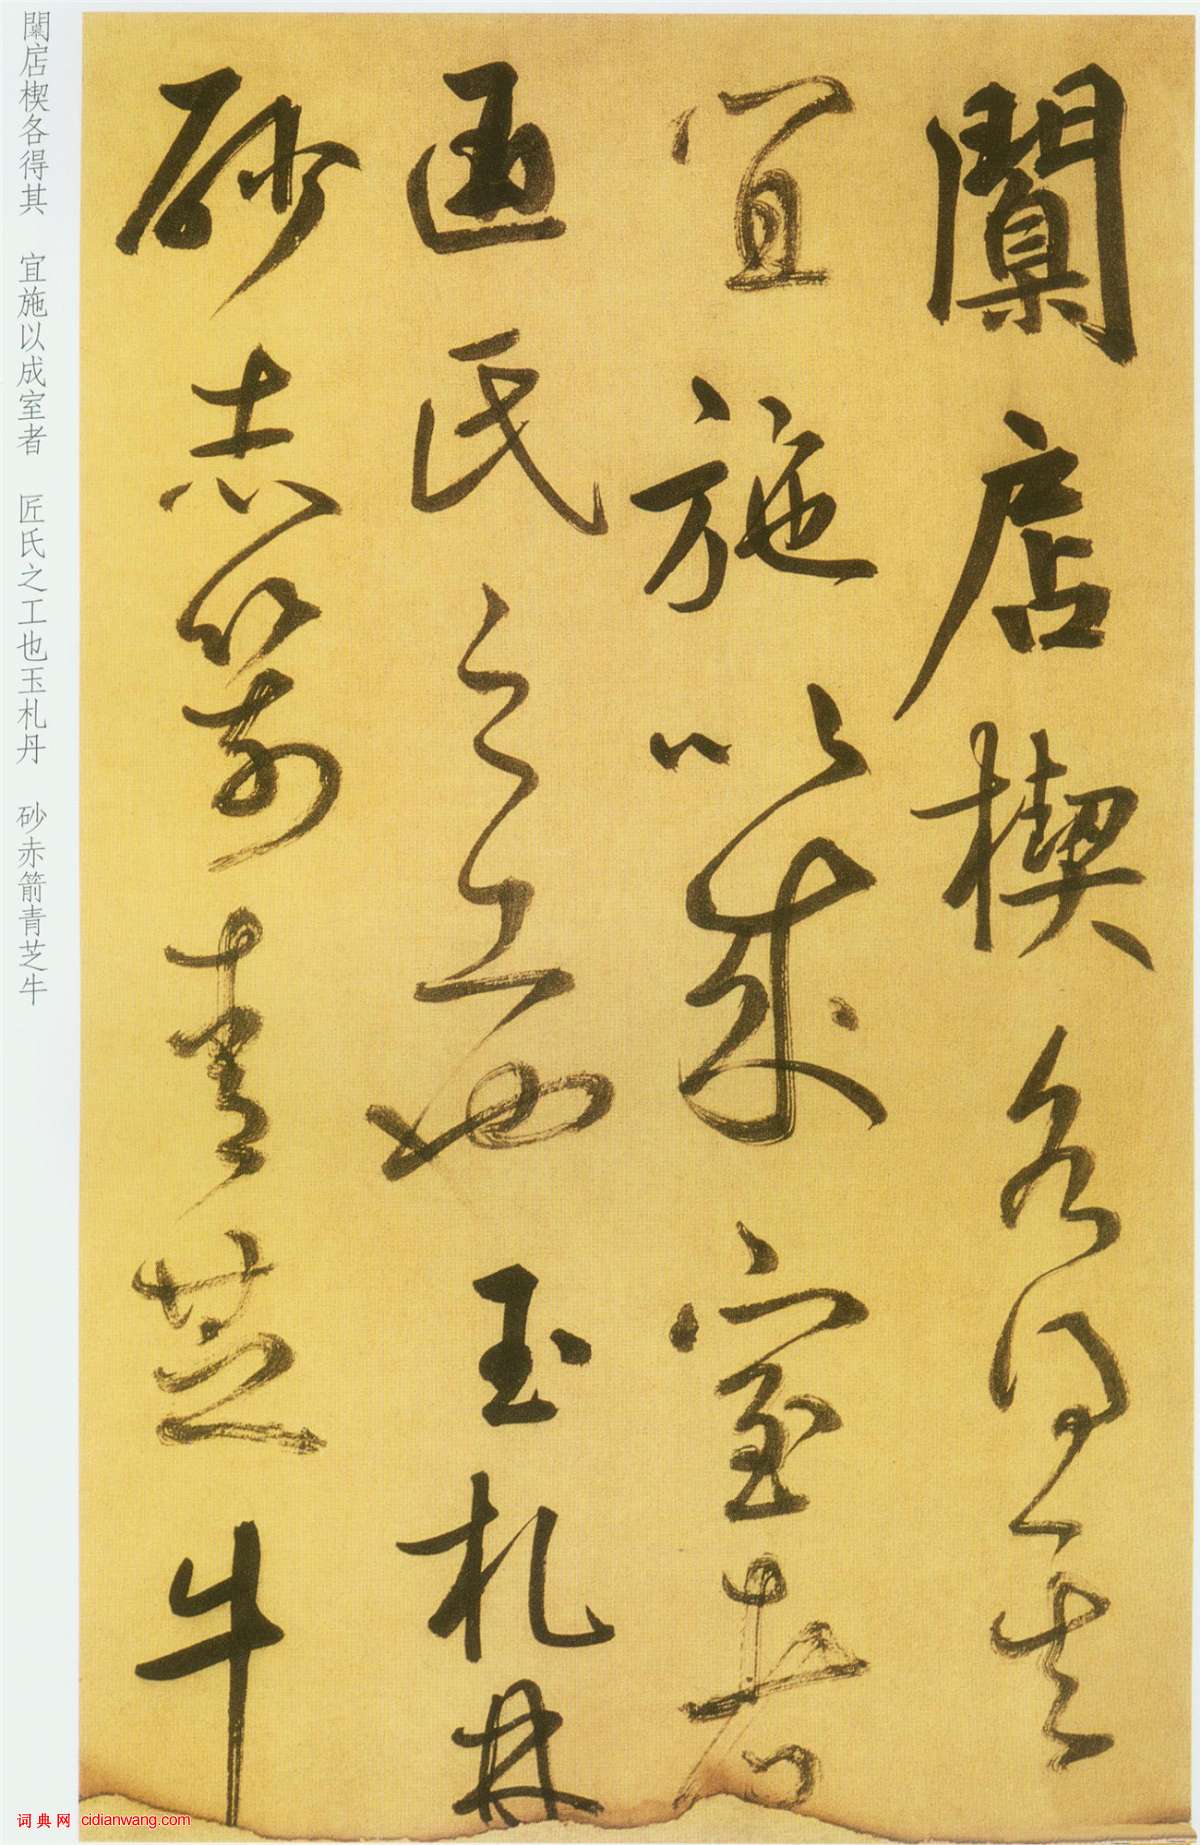 闑扂楔各得其
宜施以成室者
匠氏之工也玉札丹
砂赤箭青芝牛
闑扂楔各得其 宜施以成室者 匠氏之工也玉札丹 砂赤箭青芝牛
词典网 cidianwang.com